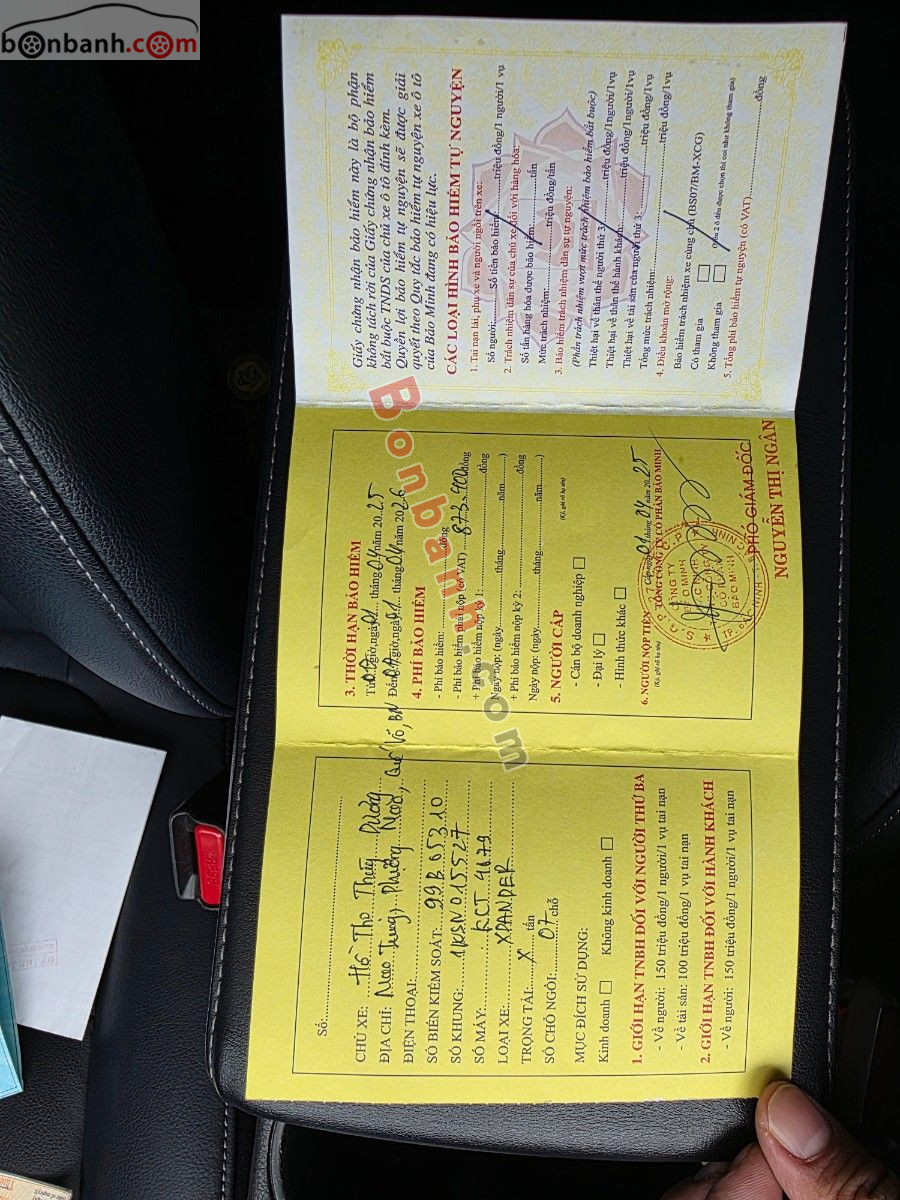 bonbanh.com
Số:
CHỦ XE: Hồ Thọ Thúy Phượng
ĐỊA CHỈ: Mao Trung, Phượng Mao, Quế Võ, BN
ĐIỆN THOẠI:
SỐ BIỂN KIỂM SOÁT: 99B 053 10
SỐ KHUNG: 1KSN015527
SỐ MÁY: KCJ 9679
LOẠI XE: XPANDER
TRỌNG TẢI: X tấn
SỐ CHỖ NGỒI: 07 chỗ
MỤC ĐÍCH SỬ DỤNG:
Kinh doanh Không kinh doanh
1. GIỚI HẠN TNBH ĐỐI VỚI NGƯỜI THỨ BA
- Về người: 150 triệu đồng/1 người/1 vụ tai nạn
- Về tài sản: 100 triệu đồng/1 vụ tai nạn
2. GIỚI HẠN TNBH ĐỐI VỚI HÀNH KHÁCH
- Về người: 150 triệu đồng/1 người/1 vụ tai nạn
3. THỜI HẠN BẢO HIỂM
giờ, ngày 01 tháng 04 năm 2025
giờ, ngày 01 tháng 04 năm 2026
4. PHÍ BẢO HIỂM
- Phí bảo hiểm: đồng
- Phí bảo hiểm phải nộp (có VAT) 873.400 đồng
+ Phí bảo hiểm nộp kỳ 1: đồng
Ngày nộp: (ngày tháng năm )
+ Phí bảo hiểm nộp kỳ 2: đồng
Ngày nộp: (ngày tháng năm )
5. NGƯỜI CẤP
- Cán bộ doanh nghiệp
- Đại lý
- Hình thức khác
6. NGƯỜI NỘP TIỀN
Cấp ngày 01 tháng 04 năm 2025
TỔNG CÔNG TY CỔ PHẦN BẢO MINH
PHÓ GIÁM ĐỐC
NGUYỄN THỊ NGÂN
Giấy chứng nhận bảo hiểm này là bộ phận
không tách rời của Giấy chứng nhận bảo hiểm
bắt buộc TNDS của chủ xe ô tô đính kèm.
Quyền lợi bảo hiểm tự nguyện sẽ được giải
quyết theo Quy tắc bảo hiểm tự nguyện xe ô tô
của Bảo Minh đang có hiệu lực.
CÁC LOẠI HÌNH BẢO HIỂM TỰ NGUYỆN
1. Tai nạn lái, phụ xe và người ngồi trên xe:
Số người: Số tiền bảo hiểm triệu đồng/1 người/1 vụ
2. Trách nhiệm dân sự của chủ xe đối với hàng hóa:
Số tấn hàng hóa được bảo hiểm: tấn
Mức trách nhiệm: triệu đồng/tấn
3. Bảo hiểm trách nhiệm dân sự tự nguyện:
(Phần trách nhiệm vượt mức trách nhiệm bảo hiểm bắt buộc)
Thiệt hại về thân thể người thứ 3: triệu đồng/1người/1vụ
Thiệt hại về thân thể hành khách: triệu đồng/1người/1vụ
Thiệt hại về tài sản của người thứ 3: triệu đồng/1vụ
Tổng mức trách nhiệm: triệu đồng/1vụ
4. Điều khoản mở rộng:
Bảo hiểm trách nhiệm xe cùng chủ (BS07/BM-XCG)
Có tham gia
Không tham gia
5. Tổng phí bảo hiểm tự nguyện (có VAT) đồng
Bonbanh.com